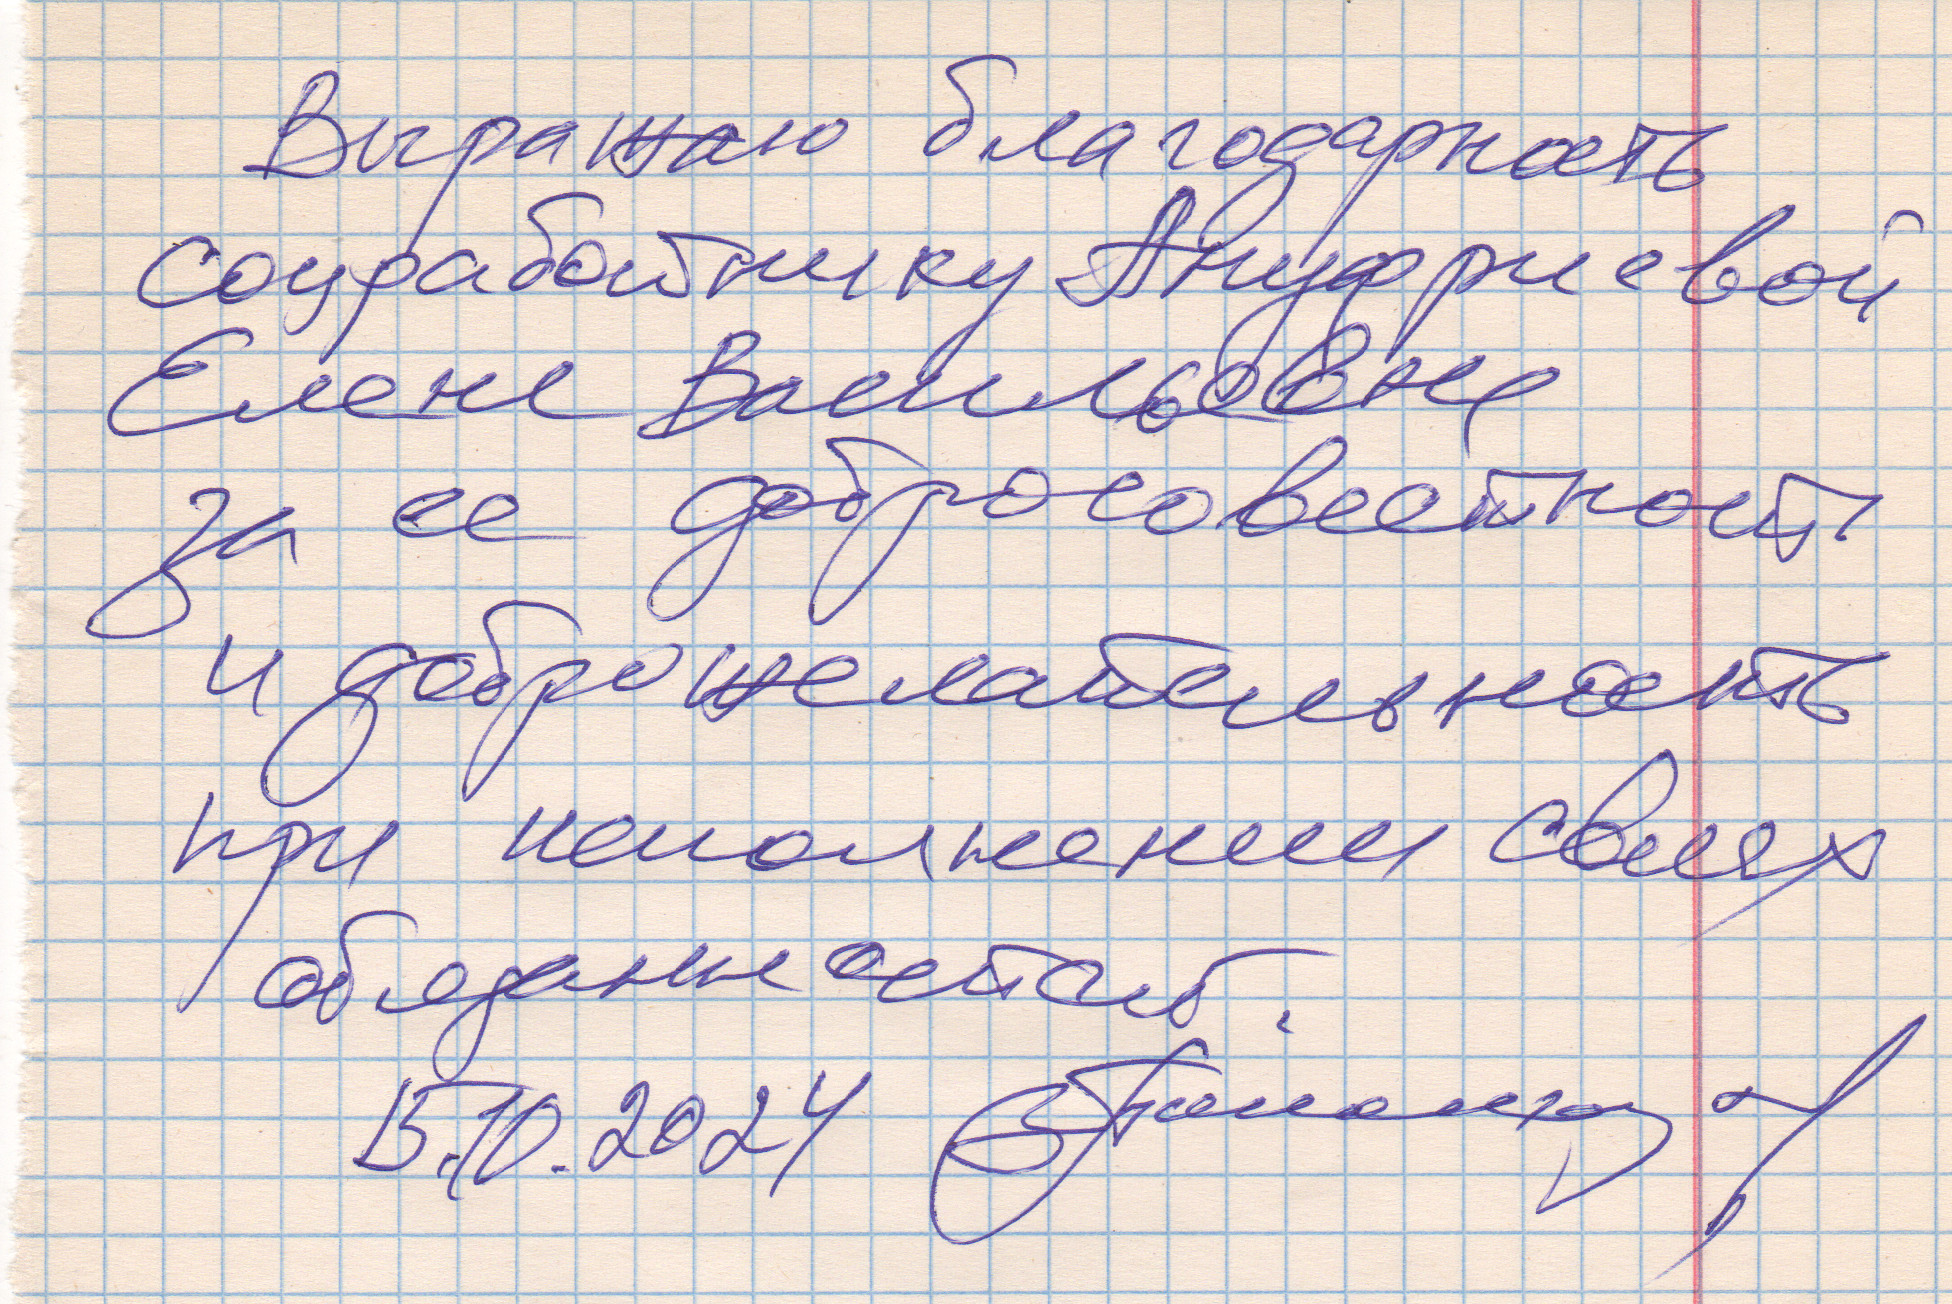 Выражаю благодарность
соцработнику Ануфриевой
Елене Васильевне
за ее добросовестность
и доброжелательность
при исполнении своих
обязанностей.
15.10.2024